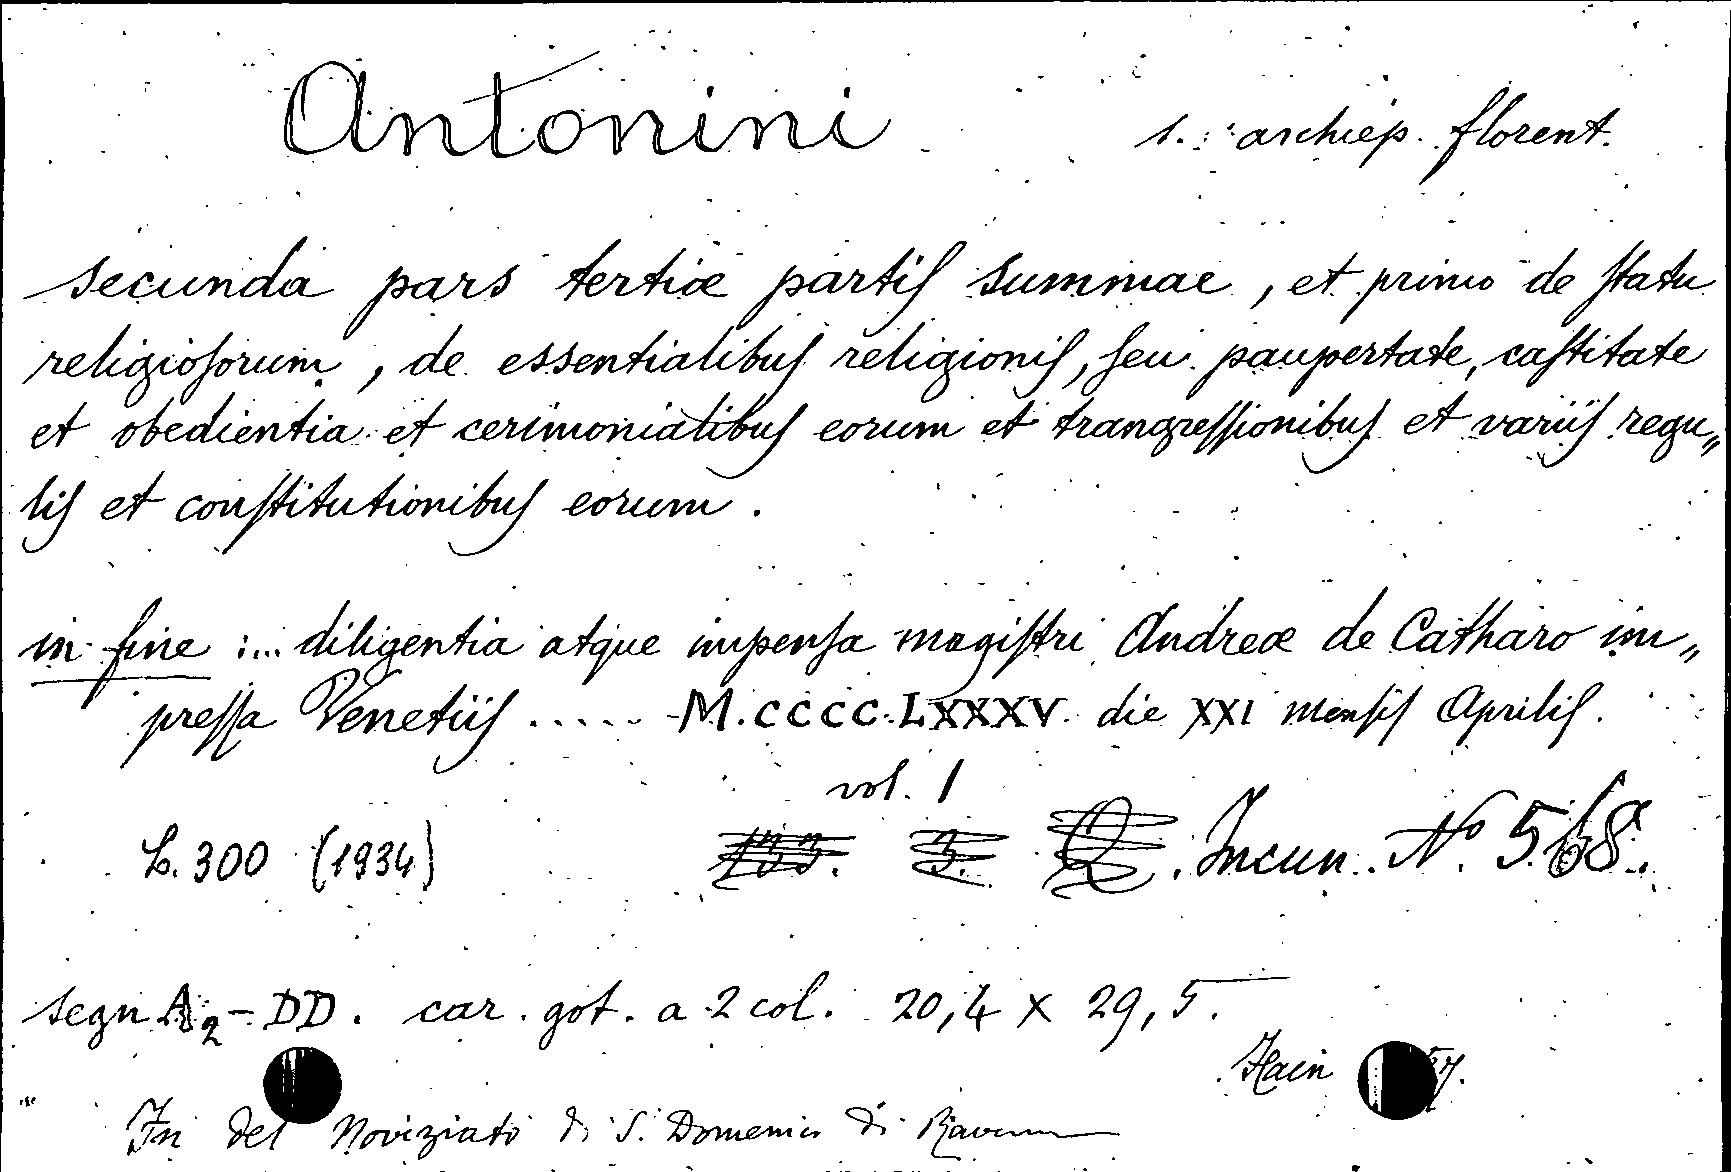 Antonini s. archiep. florent.
secunda pars tertiæ partiſ summae, et primo de ſtatu
religioſorum, de essentialibuſ religioniſ, ſeu paupertate, caſtitate
et obedientia et cerimonialibuſ eorum et trangreſſionibuſ et variiſ regu„
liſ et conſtitutionibuſ eorum.
in fine :... diligentia atque impenſa magiſtri Andreæ de Catharo im„
preſſa Venetiiſ ..... M.CCCC.LXXXV. die XXI menſiſ Apriliſ.
vol. 1
L. 300 (1934) Incun. N.º 568.
segn A2 - DD. car. got. a 2 col. 20,4 x 29,5.
Hain
Fu del Noviziato di S. Domenico di Ravenna